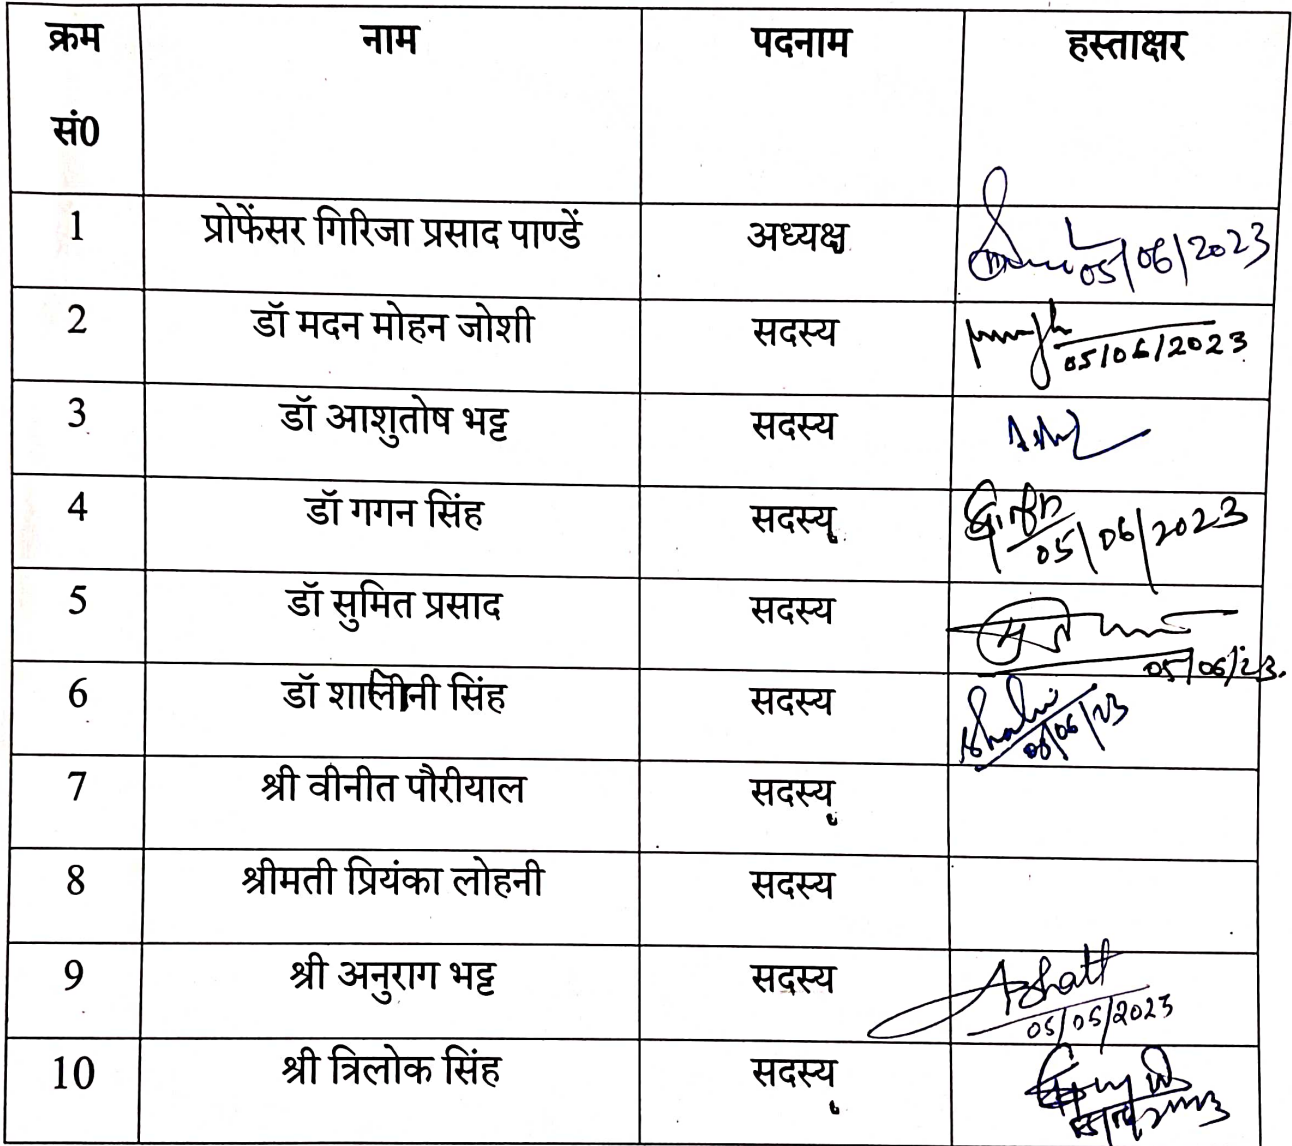 क्रम सं0 नाम पदनाम हस्ताक्षर
1 प्रोफेंसर गिरिजा प्रसाद पाण्डें अध्यक्ष 05/06/2023
2 डॉ मदन मोहन जोशी सदस्य 05/06/2023
3 डॉ आशुतोष भट्ट सदस्य
4 डॉ गगन सिंह सदस्य 05/06/2023
5 डॉ सुमित प्रसाद सदस्य 05/06/23.
6 डॉ शालीनी सिंह सदस्य
7 श्री वीनीत पौरीयाल सदस्य
8 श्रीमती प्रियंका लोहनी सदस्य
9 श्री अनुराग भट्ट सदस्य ABhatt
10 श्री त्रिलोक सिंह सदस्य